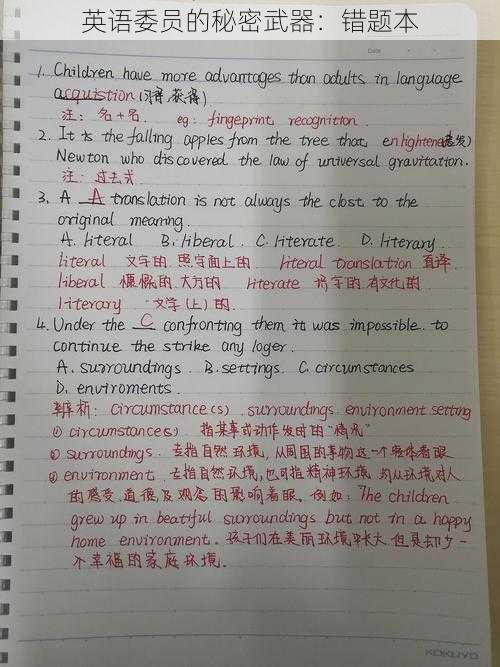 英语委员的秘密武器：错题本
Date
1. Children have more advantages than adults in language
acquistion (习得,获得)
注：名+名. eg: fingeprint recognition
2. It is the falling apples from the tree that enlightened(启发)
Newton who discovered the law of universal gravitation.
注：过去式
3. A A translation is not always the clost to the
original meaning.
A. literal B. liberal. C. literate. D. literary.
literal 文字的.照字面上的 literal translation 直译.
liberal 慷慨的.大方的 literate 识字的.有文化的
literary 文学(上)的.
4. Under the C confronting them it was impossible to
continue the strike any loger.
A. surroundings. B. settings. C. circumstances
D. enviroments.
辨析：circumstance(s) surroundings environment setting
① circumstance(s) 指某事或动作发时的“情况”
② surroundings 专指自然环境，从周围的事物这一个客体着眼
③ environment 专指自然环境,也可指精神环境 均从环境对人
的感受.道德及观念的影响着眼. 例如：The children
grew up in beatiful surroundings but not in a happy
home environment. 孩子们在美丽环境中长大.但是却少一
个幸福的家庭环境.
KOKUYO